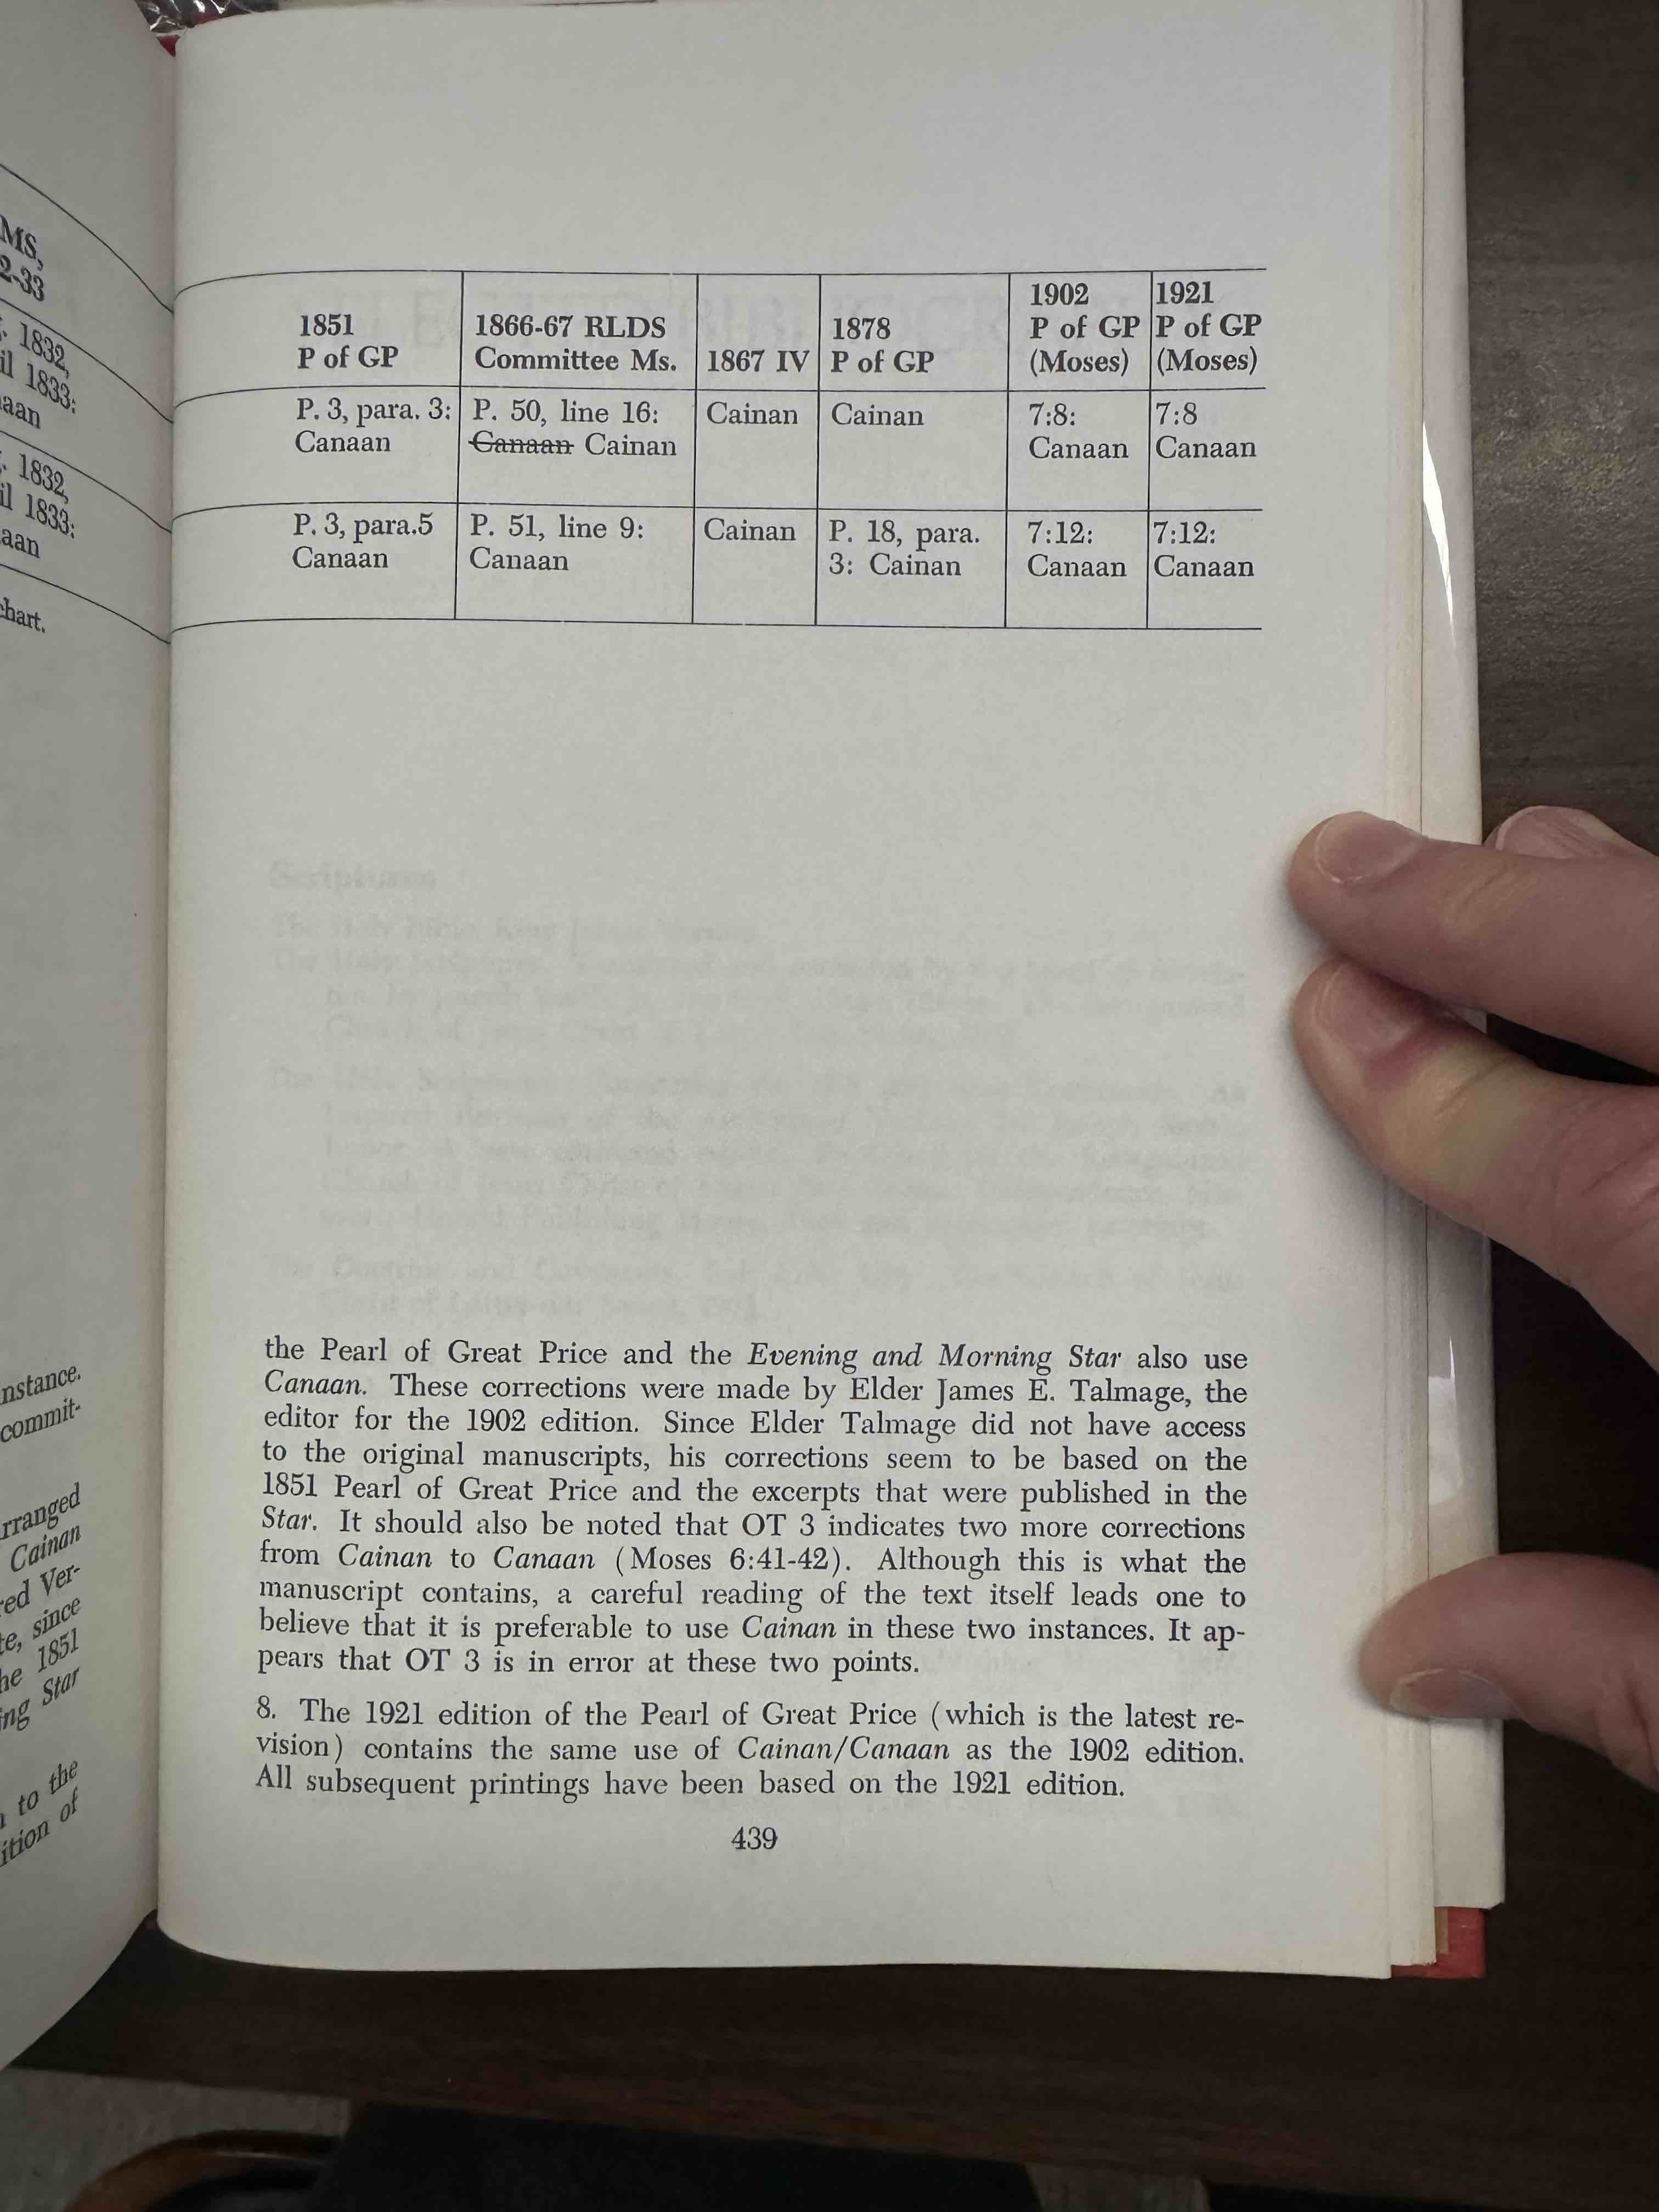 MS,
2-33
1832,
1833:
1832,
1833:
chart.
nstance.
commit-
rranged
Cainan
Ver-
since
1851
Star
to the
ition of
1851 P of GP
1866-67 RLDS Committee Ms.
1867 IV
1878 P of GP
1902 P of GP (Moses)
1921 P of GP (Moses)
P. 3, para. 3: Canaan
P. 50, line 16: Canaan Cainan
Cainan
Cainan
7:8: Canaan
7:8 Canaan
P. 3, para.5 Canaan
P. 51, line 9: Canaan
Cainan
P. 18, para. 3: Cainan
7:12: Canaan
7:12: Canaan
the Pearl of Great Price and the Evening and Morning Star also use
Canaan. These corrections were made by Elder James E. Talmage, the
editor for the 1902 edition. Since Elder Talmage did not have access
to the original manuscripts, his corrections seem to be based on the
1851 Pearl of Great Price and the excerpts that were published in the
Star. It should also be noted that OT 3 indicates two more corrections
from Cainan to Canaan (Moses 6:41-42). Although this is what the
manuscript contains, a careful reading of the text itself leads one to
believe that it is preferable to use Cainan in these two instances. It ap-
pears that OT 3 is in error at these two points.
8. The 1921 edition of the Pearl of Great Price (which is the latest re-
vision) contains the same use of Cainan/Canaan as the 1902 edition.
All subsequent printings have been based on the 1921 edition.
439